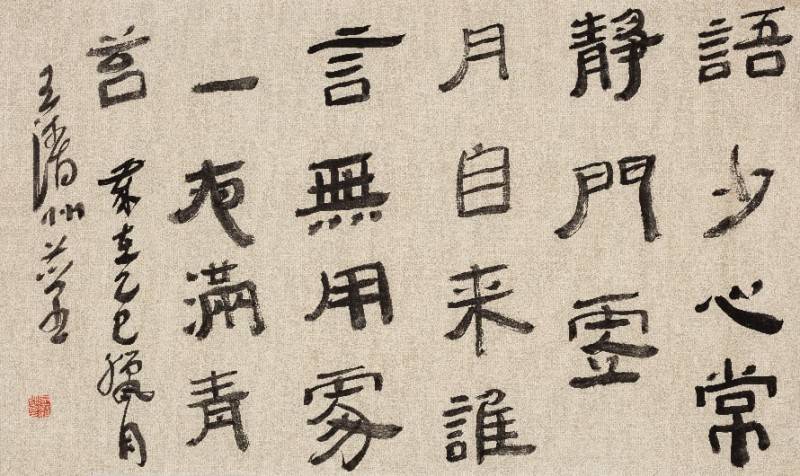 語少心常
靜門虛
月自来誰
言無用處
一夜滿青
苔 歲在乙巳臘月
王 州